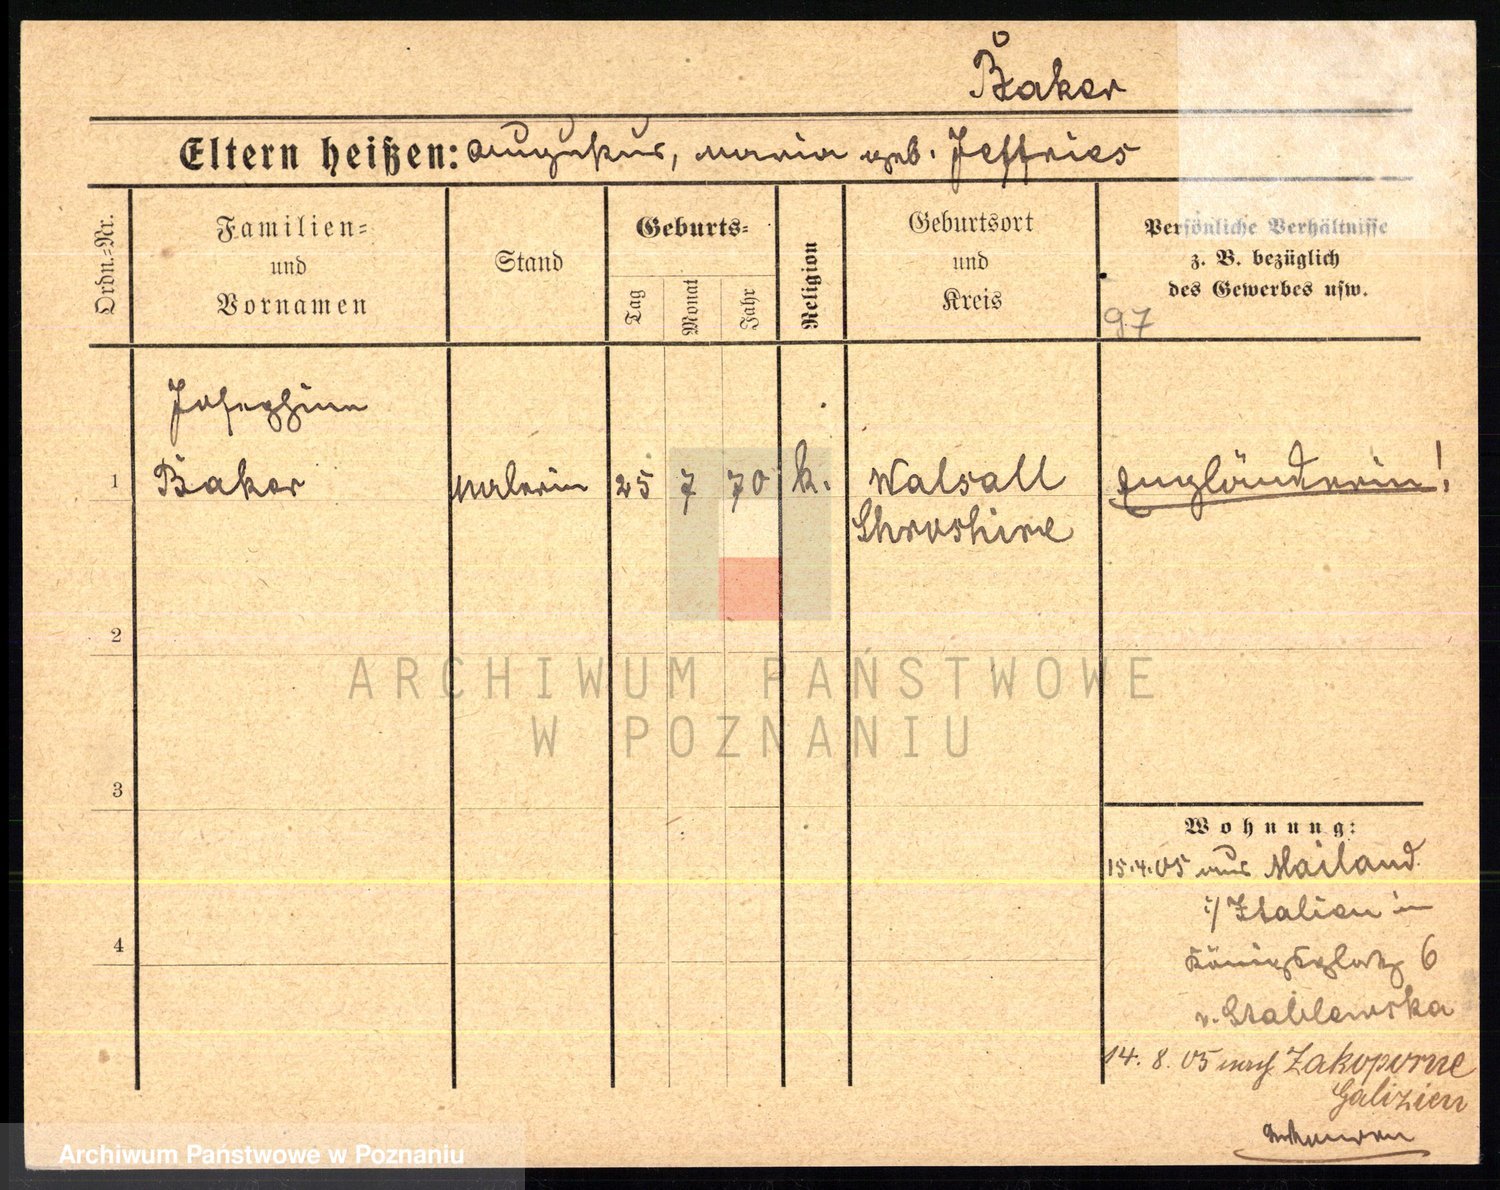 Baker
Eltern heißen: Augustus, Maria geb. Jeffries
Ordn.-Nr.
Familien-
und
Vornamen
Stand
Geburts-
Tag
Monat
Jahr
Religion
Geburtsort
und
Kreis
Persönliche Verhältnisse
z. B. bezüglich
des Gewerbes usw.
97
Josephine
1 Baker Malerin 25 7 70 k. Walsall Engländerin!
Shroshire
2
ARCHIWUM PAŃSTWOWE
W POZNANIU
3
Wohnung:
15.4.05 aus Mailand
i/Italien in
Königsplatz 6
v. Stablewska
4
14. 8. 05 nach Zakopone
Galizien
Archiwum Państwowe w Poznaniu